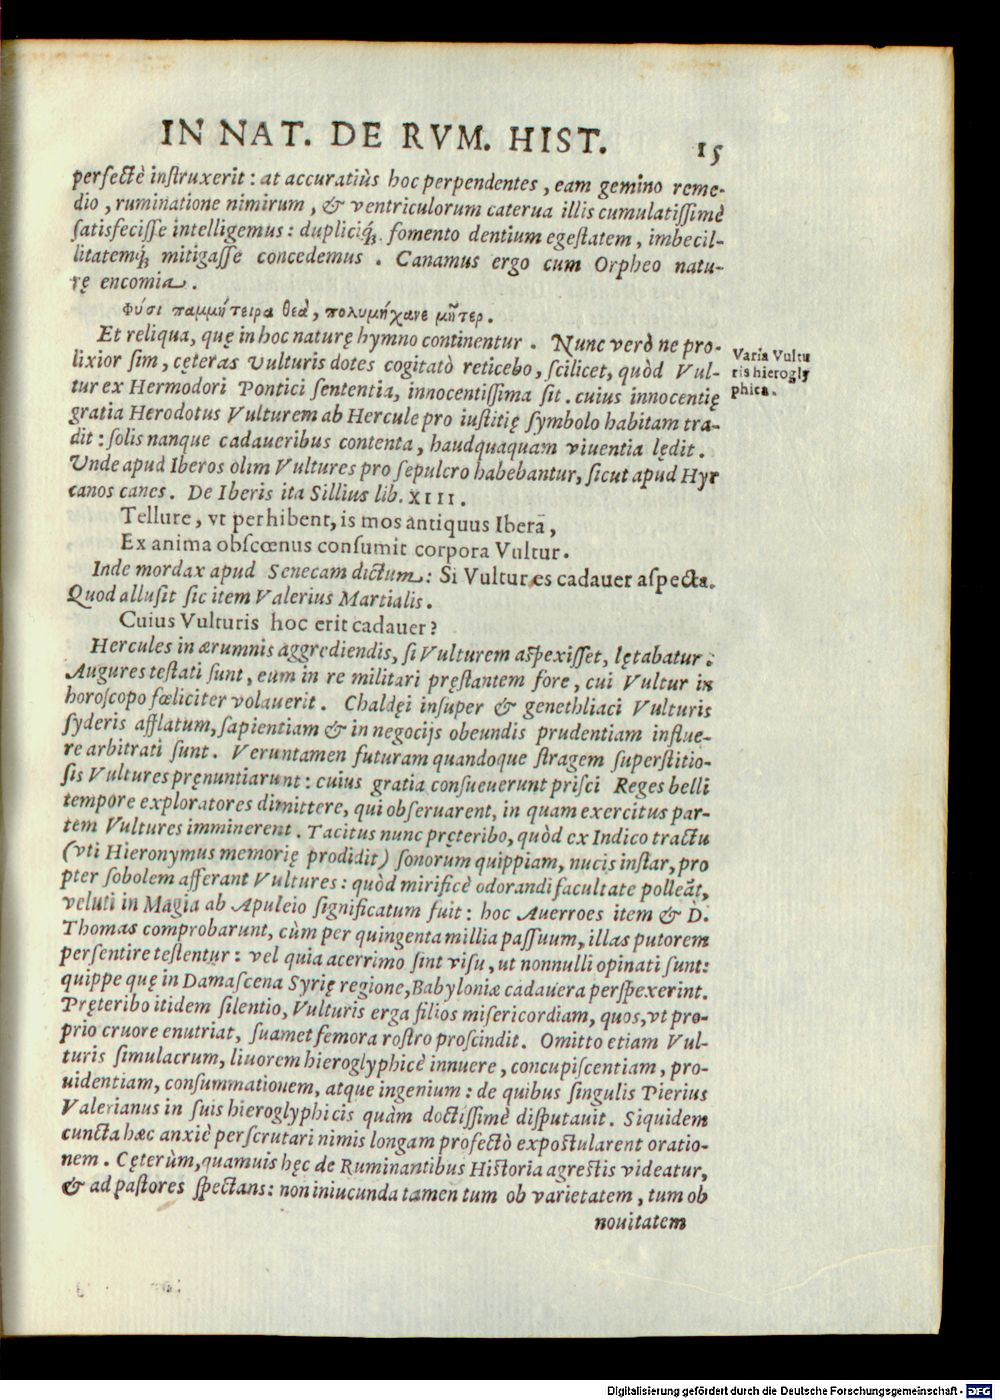 IN NAT. DE RVM. HIST. 15
perfectè instruxerit : at accuratiùs hoc perpendentes , eam gemino reme-
dio , ruminatione nimirum , & ventriculorum caterua illis cumulatissimè
satisfecisse intelligemus : dupliciq́; fomento dentium egestatem , imbecil-
litatemq́; mitigasse concedemus . Canamus ergo cum Orpheo natu-
rę encomia .
Φύσι παμμήτειρα θεὰ, πολυμήχανε μῆτερ.
Et reliqua, quę in hoc naturę hymno continentur . Nunc verò ne pro-
lixior sim , cęteras Vulturis dotes cogitatò reticebo , scilicet, quòd Vul-
tur ex Hermodori Pontici sententia, innocentissima sit . cuius innocentię
gratia Herodotus Vulturem ab Hercule pro iustitię symbolo habitam tra-
dit : solis nanque cadaueribus contenta , haudquaquam viuentia lędit .
Unde apud Iberos olim Vultures pro sepulcro habebantur, sicut apud Hyr
canos canes . De Iberis ita Sillius lib. XIII.
Varia Vultu
ris hierogly
phica.
Tellure, vt perhibent, is mos antiquus Iberã,
Ex anima obscœnus consumit corpora Vultur.
Inde mordax apud Senecam dictum : Si Vultur es cadauer aspecta.
Quod allusit sic item Valerius Martialis .
Cuius Vulturis hoc erit cadauer?
Hercules in ærumnis aggrediendis, si Vulturem aspexisset, lętabatur :
Augures testati sunt , eum in re militari pręstantem fore , cui Vultur in
horoscopo fœliciter volauerit . Chaldęi insuper & genethliaci Vulturis
syderis afflatum, sapientiam & in negocijs obeundis prudentiam influe-
re arbitrati sunt . Veruntamen futuram quandoque stragem superstitio-
sis Vultures pręnuntiarunt : cuius gratia consueuerunt prisci Reges belli
tempore exploratores dimittere, qui obseruarent, in quam exercitus par-
tem Vultures imminerent . Tacitus nunc pręteribo, quòd ex Indico tractu
(vti Hieronymus memorię prodidit) sonorum quippiam, nucis instar, pro
pter sobolem afferant Vultures : quòd mirificè odorandi facultate polleãt,
veluti in Magia ab Apuleio significatum fuit : hoc Auerroes item & D.
Thomas comprobarunt, cùm per quingenta millia passuum, illas putorem
persentire testentur : vel quia acerrimo sint visu, ut nonnulli opinati sunt:
quippe quę in Damascena Syrię regione, Babyloniæ cadauera perspexerint.
Pręteribo itidem silentio, Vulturis erga filios misericordiam, quos, vt pro-
prio cruore enutriat, suamet femora rostro proscindit . Omitto etiam Vul-
turis simulacrum, liuorem hieroglyphicè innuere , concupiscentiam , pro-
uidentiam, consummationem, atque ingenium : de quibus singulis Pierius
Valerianus in suis hieroglyphicis quàm doctissimè disputauit . Siquidem
cuncta hæc anxiè perscrutari nimis longam profectò expostularent oratio-
nem . Cęterùm, quamuis hęc de Ruminantibus Historia agrestis videatur,
& ad pastores spectans : non iniucunda tamen tum ob varietatem , tum ob
nouitatem
Digitalisierung gefördert durch die Deutsche Forschungsgemeinschaft - DFG